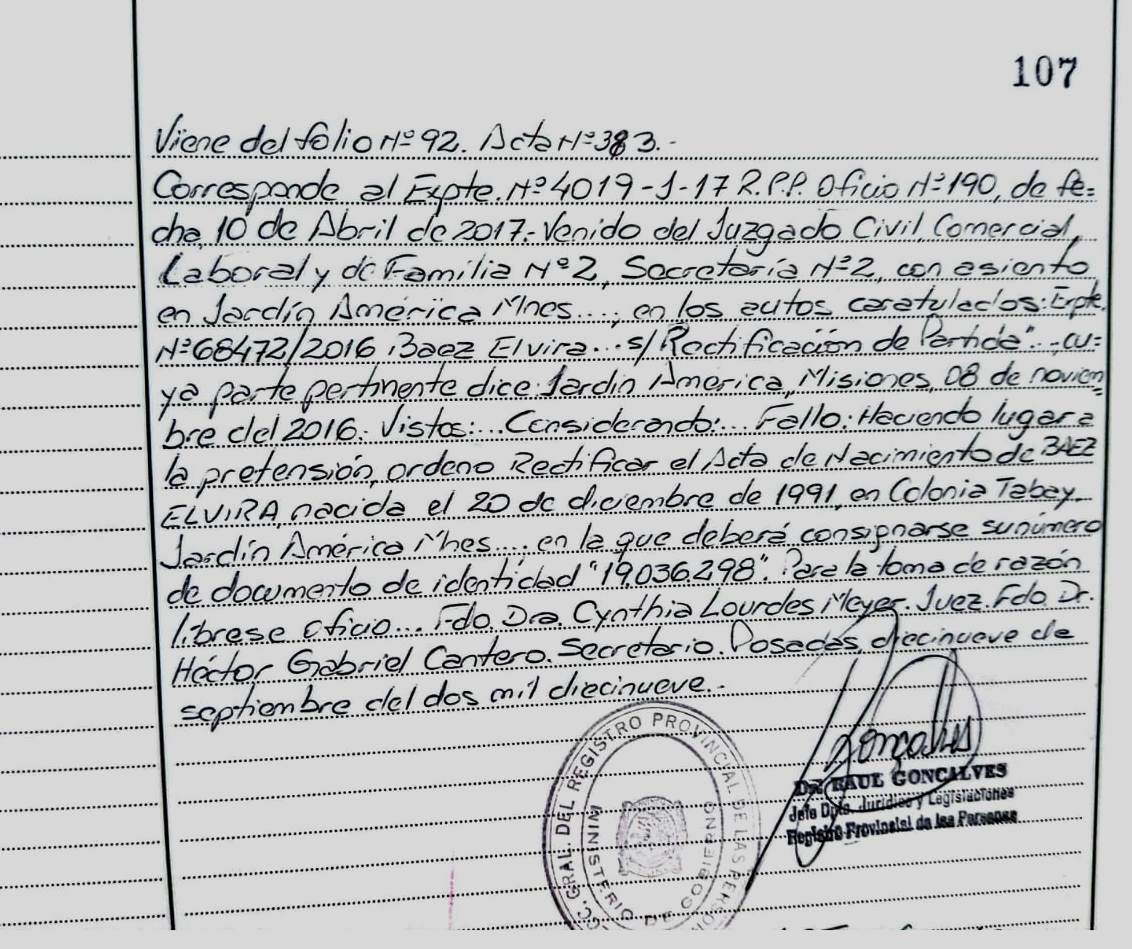 107
Viene del folio Nº 92. Acta Nº 383.-
Corresponde al Expte. Nº 4019-J-17 R.P.P. Oficio Nº 190, de fe=
cha, 10 de Abril de 2017.- Venido del Juzgado Civil, Comercial,
Laboral y de Familia Nº 2, Secretaría Nº 2, con asiento
en Jardín América Mnes..., en los autos caratulados: Expte.
Nº 68472/2016 "Baez Elvira... s/ Rectificación de Partida"..., cu=
ya parte pertinente dice: Jardin America, Misiones, 08 de noviem
bre del 2016. Vistos:... Considerando:... Fallo: Haciendo lugar a
la pretensión, ordeno Rectificar el Acta de Nacimiento de BAEZ
ELVIRA, nacida el 20 de diciembre de 1991, en Colonia Tabay,
Jardín América Mnes..., en la que deberá consignarse su número
de documento de identidad "19.036.298". Para la toma de razón
líbrese oficio... Fdo. Dra. Cynthia Lourdes Meyer. Juez. Fdo Dr.
Héctor Gabriel Cantero. Secretario. Posadas, diecinueve de
septiembre del dos mil diecinueve.-
GRAL. DEL REGISTRO PROVINCIAL DE LAS
MINISTERIO DE GOBIERNO
Goncalves
DR. RAUL GONCALVES
Jefe Dpto. Jurídico y Legislaciones
Registro Provincial de las Personas